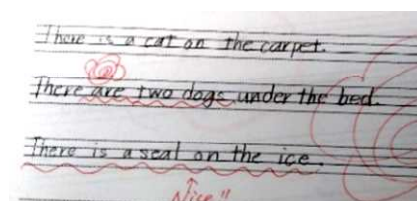 There is a cat on the carpet.
There are two dogs under the bed.
There is a seal on the ice.
Nice"